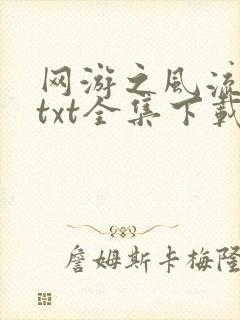 网游之风流
txt全集下载
詹姆斯卡梅隆